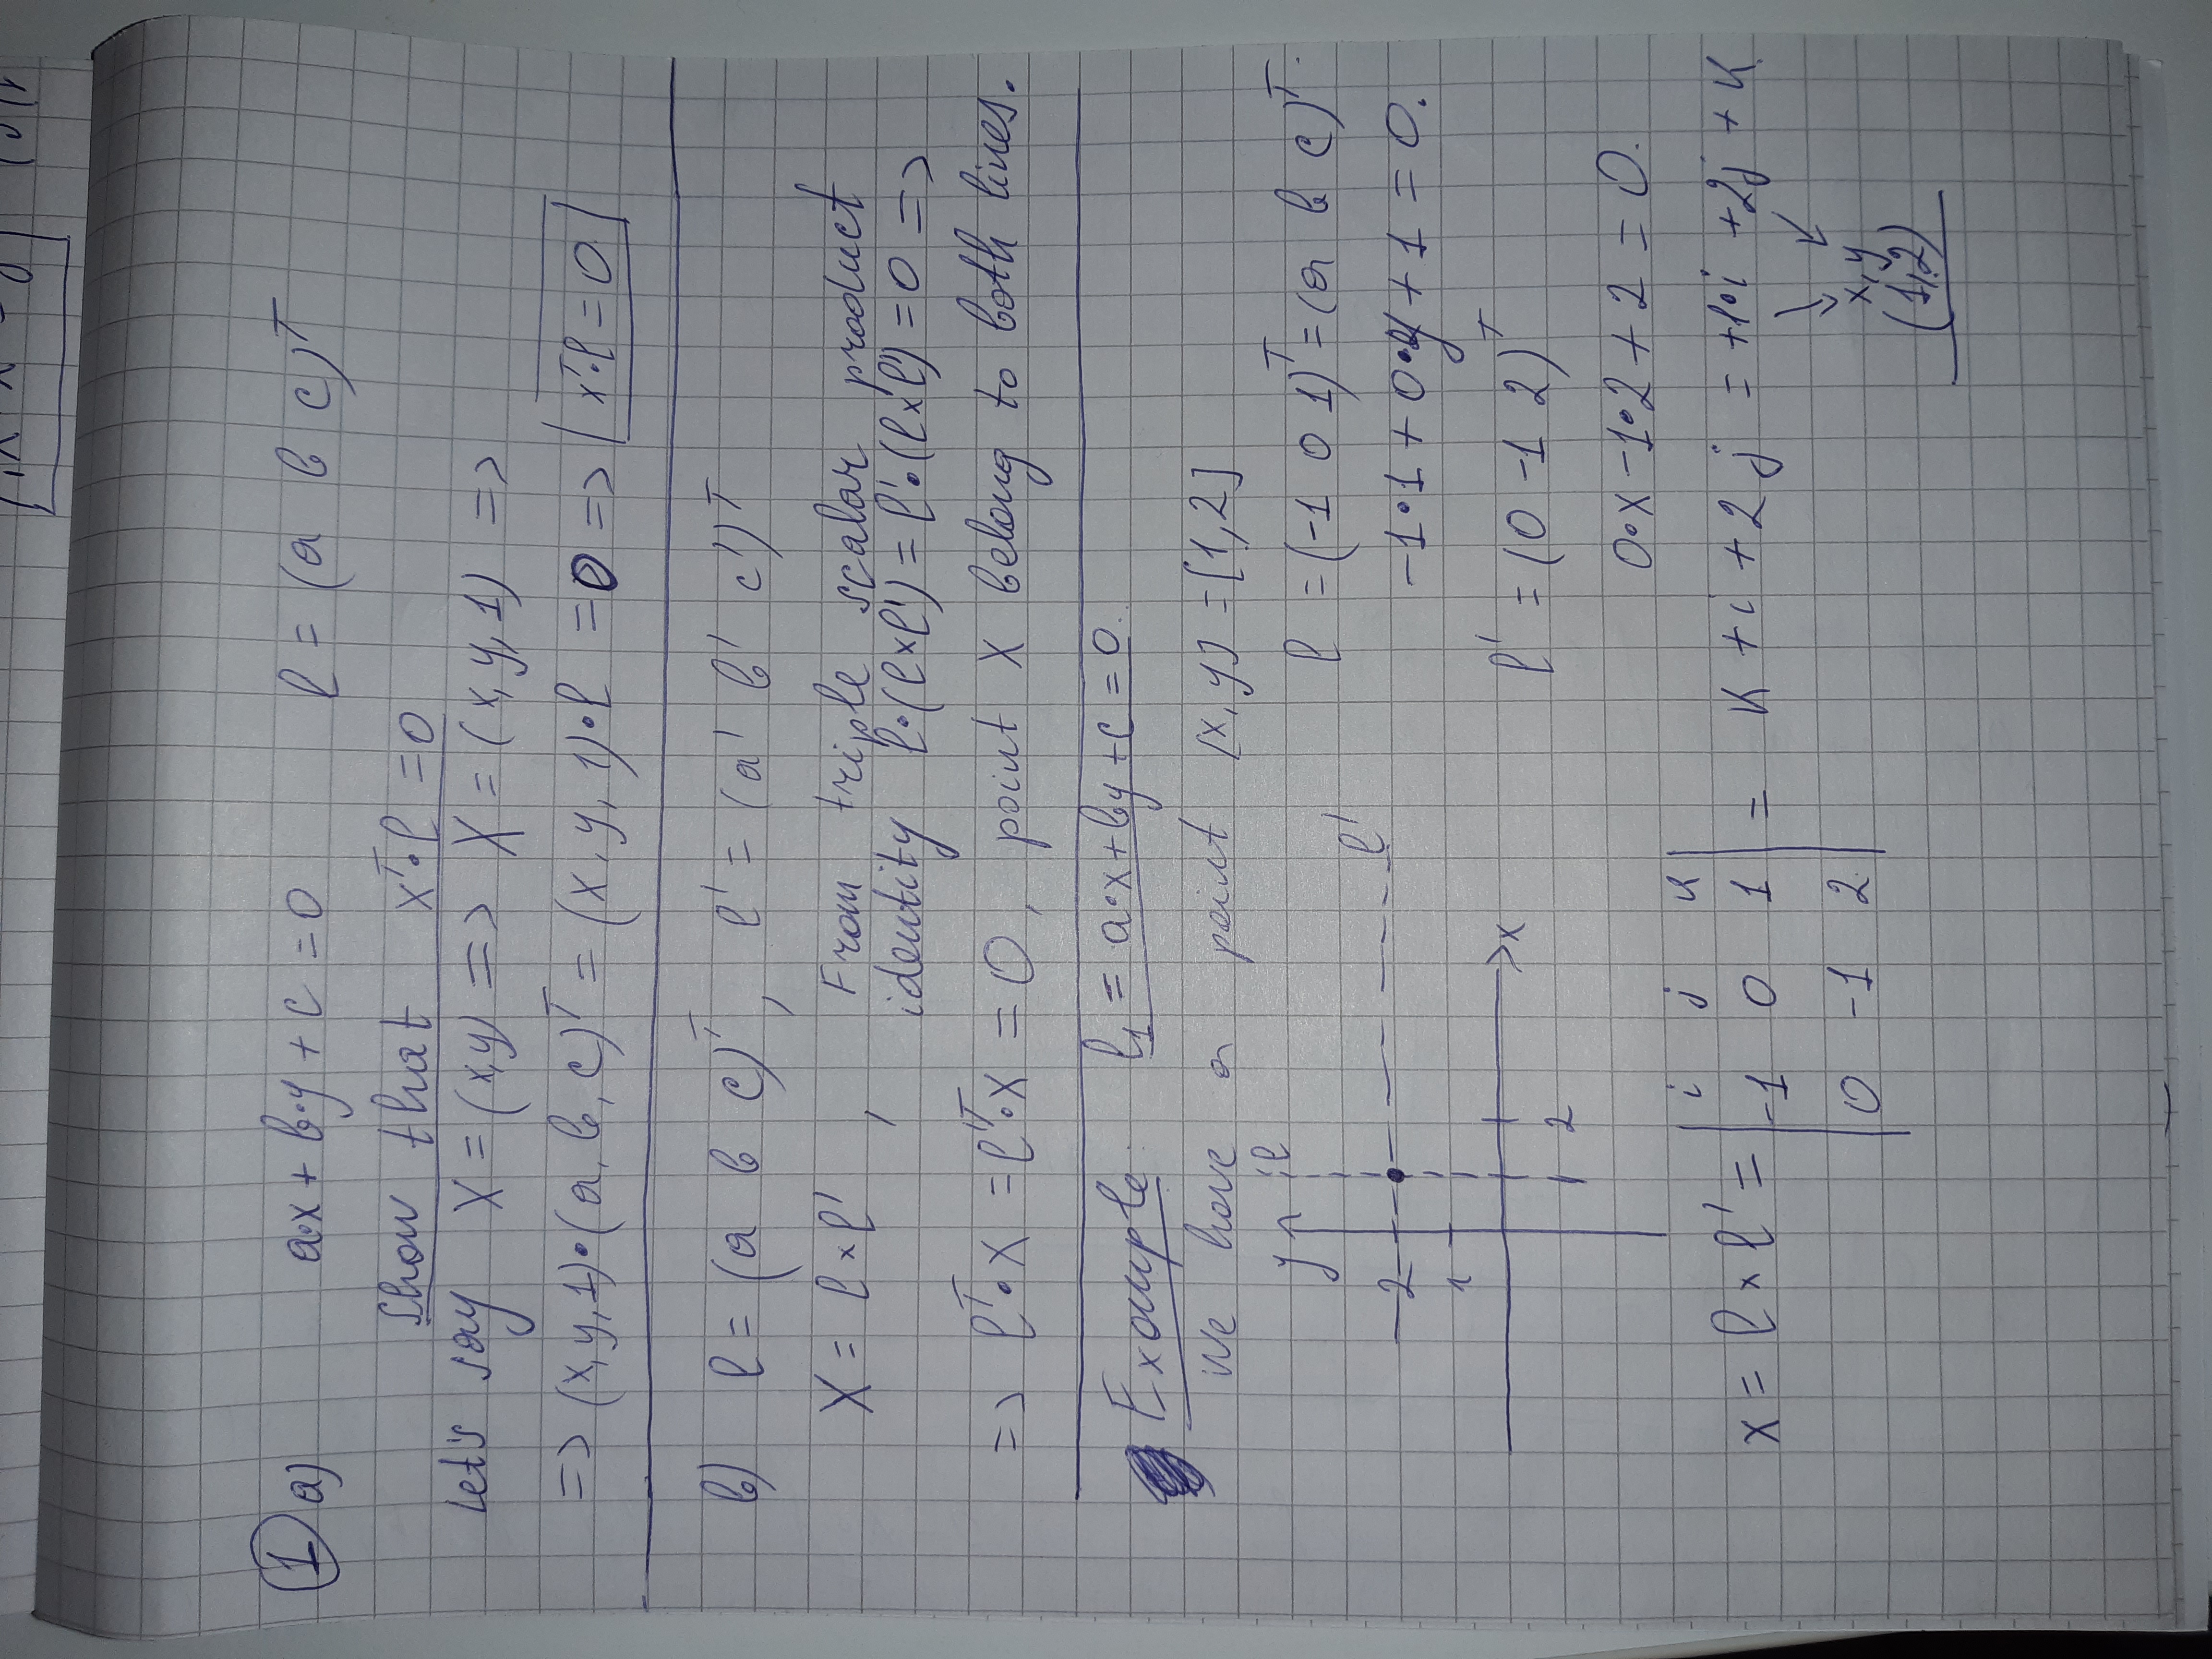 1 a) a·x + b·y + c = 0 l = (a b c)ᵀ
Show that xᵀ·l = 0
Let's say X = (x,y) => X = (x, y, 1) =>
=> (x,y,1)·(a, b, c)ᵀ = (x, y, 1)·l = 0 => xᵀ·l = 0
b) l = (a b c)ᵀ, l' = (a' b' c')ᵀ
X = l × l' , From triple scalar product
identity l·(l×l') = l'·(l×l') = 0 =>
=> lᵀ·X = l'ᵀ·X = 0, point X belong to both lines.
Example: l₁ = a·x + by + c = 0.
We have a point [x, y] = [1, 2]
y l
l = (-1 0 1)ᵀ = (a b c)ᵀ
l'
2
-1·1 + 0·y + 1 = 0.
1
x
l' = (0 -1 2)ᵀ
1 2
0·x - 1·2 + 2 = 0.
i j k
x = l × l' = -1 0 1 = k + i + 2j = +1·i + 2j + k
0 -1 2
x, y
(1,2)